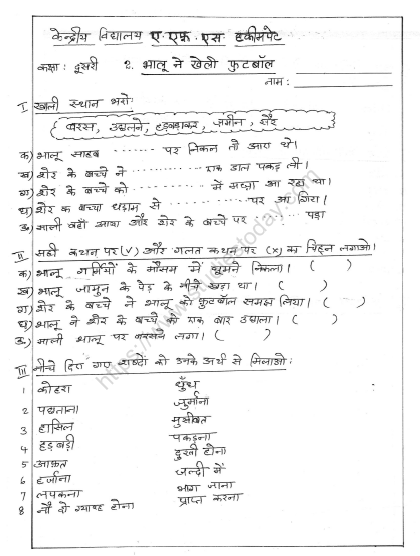 केन्द्रीय विद्यालय ए. एफ. एस. हकीमपेट
कक्षा: दूसरी 2. भालू ने खेली फुटबॉल
नाम:
I खाली स्थान भरो:
बरस, उछालने, हड़बड़ाकर, ज़मीन, सैर
क) भालू साहब .......... पर निकल तो आए थे।
ख) शेर के बच्चे ने .......... एक डाल पकड़ ली।
ग) शेर के बच्चे को .......... में मज़ा आ रहा था।
घ) शेर का बच्चा धड़ाम से .......... पर आ गिरा।
ङ) माली वहाँ आया और शेर के बच्चे पर .......... पड़ा
II सही कथन पर (√) और गलत कथन पर (×) का चिह्न लगाओ।
क) भालू गर्मियों के मौसम में घूमने निकला। ( )
ख) भालू जामुन के पेड़ के नीचे खड़ा था। ( )
ग) शेर के बच्चे ने भालू को फुटबॉल समझ लिया। ( )
घ) भालू ने शेर के बच्चे को एक बार उछाला। ( )
ङ) माली भालू पर बरसने लगा। ( )
III नीचे दिए गए शब्दों को उनके अर्थ से मिलाओ:
1 कोहरा धुँध
2 पछताना जुर्माना
3 हासिल मुसीबत
4 हड़बड़ी पकड़ना
5 आफ़त दुखी होना
6 हर्जाना जल्दी में
7 लपकना भाग जाना
8 नौ दो ग्यारह होना प्राप्त करना